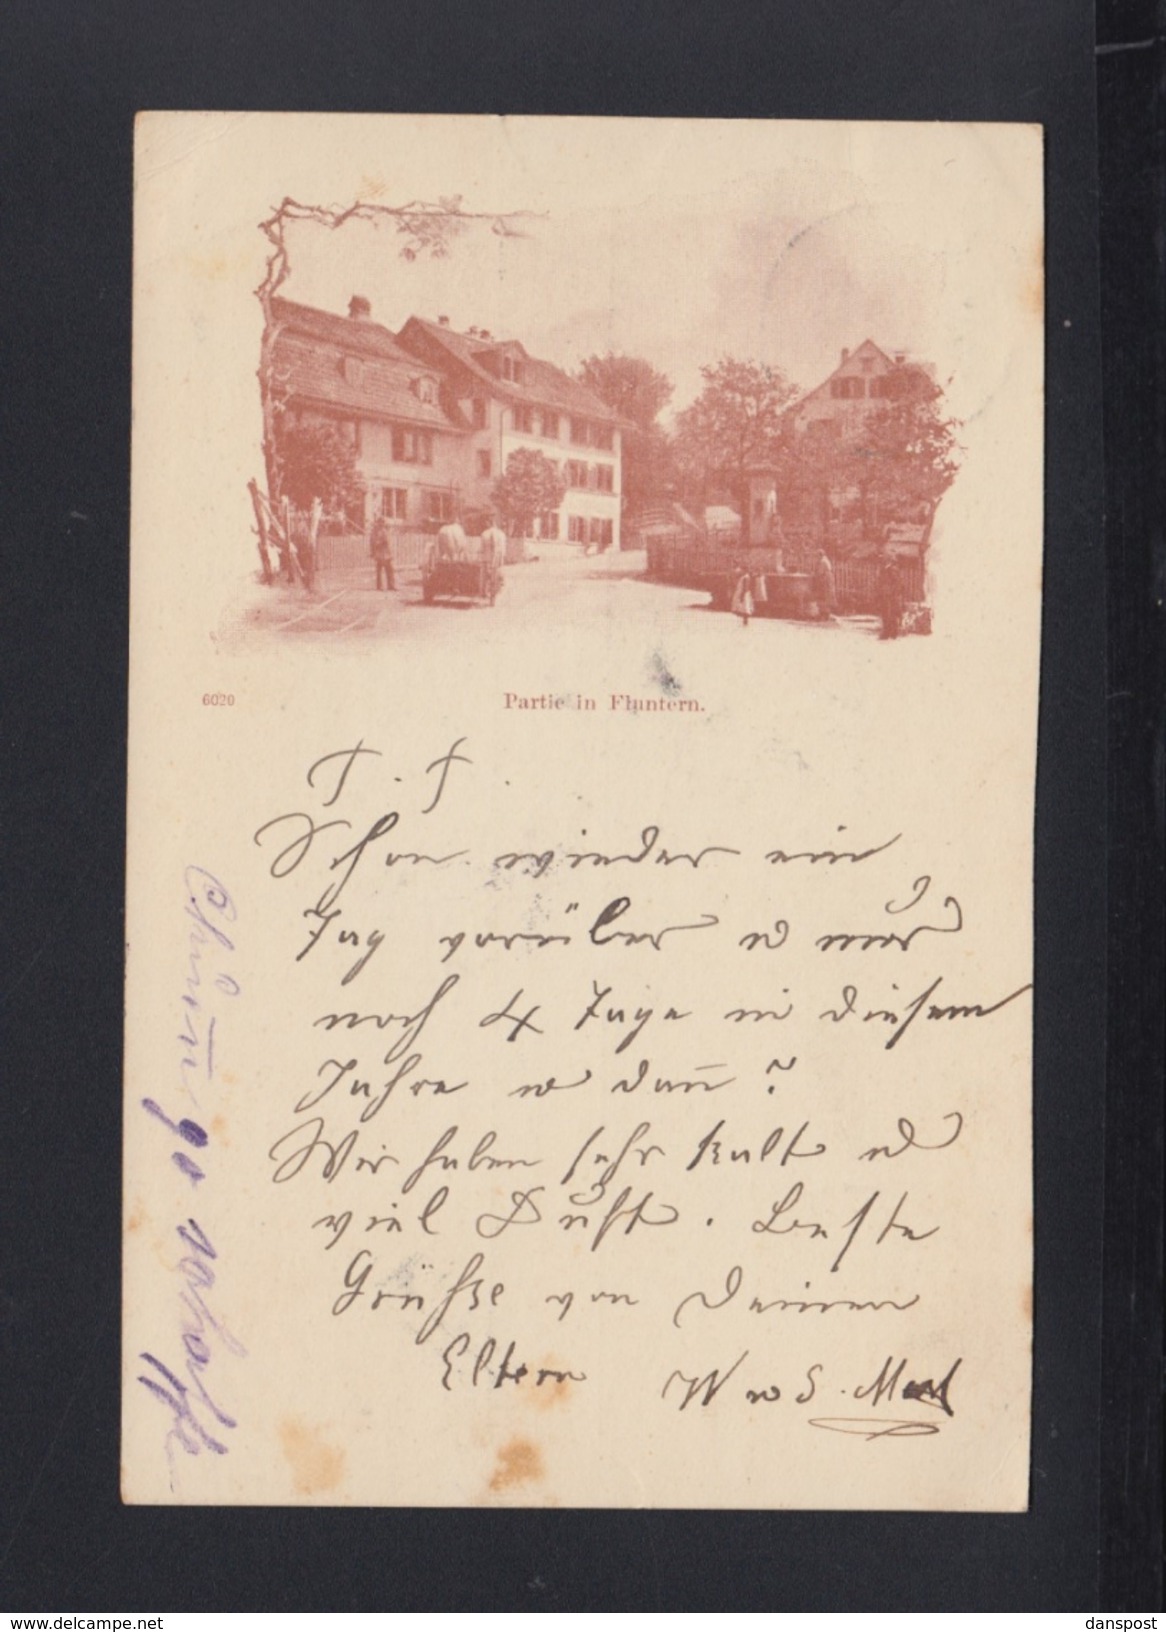 6020
Partie in Fluntern.
T. T.
Schon wieder ein
Tag vorüber u nur
noch 4 Tage in diesem
Jahre u dann?
Wir haben sehr kalt u
viel Duft. Beste
Grüße von Deinen
Eltern W u S.
https://www.delcampe.net
danspost